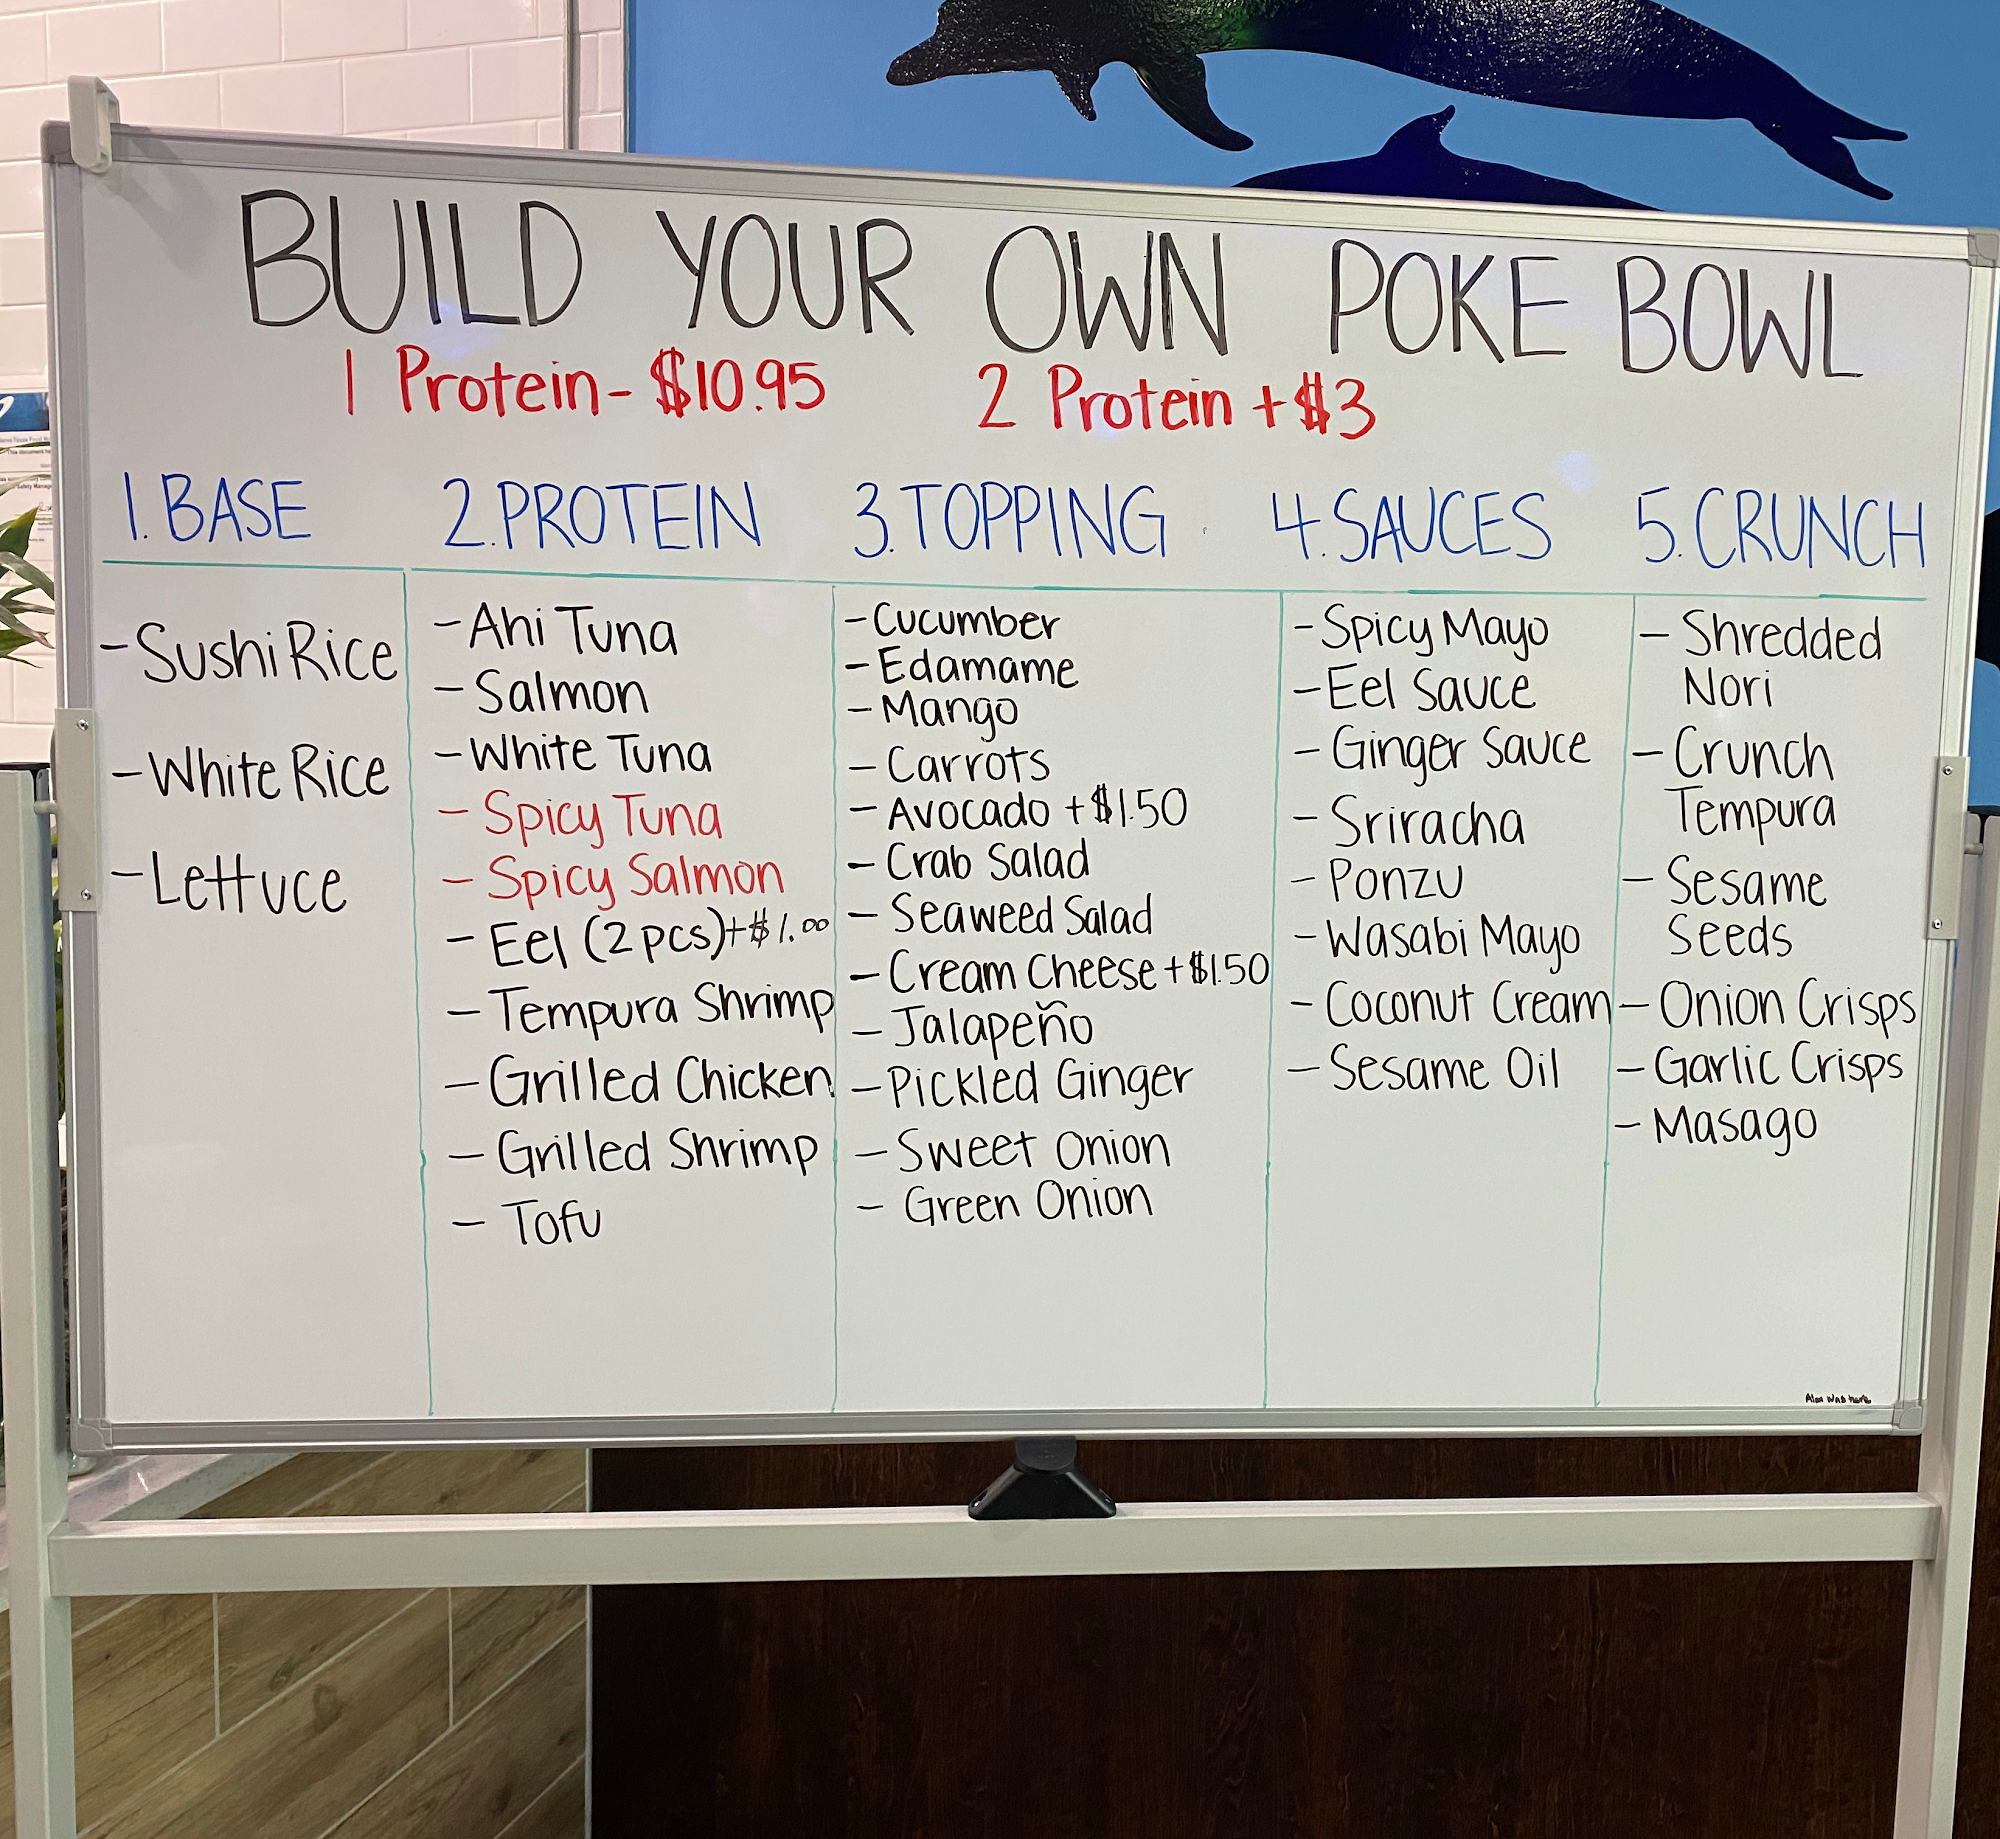 BUILD YOUR OWN POKE BOWL
1 Protein - $10.95 2 Protein + $3
1. BASE
- Sushi Rice
- White Rice
- Lettuce
2. PROTEIN
- Ahi Tuna
- Salmon
- White Tuna
- Spicy Tuna
- Spicy Salmon
- Eel (2 pcs) + $1.00
- Tempura Shrimp
- Grilled Chicken
- Grilled Shrimp
- Tofu
3. TOPPING
- Cucumber
- Edamame
- Mango
- Carrots
- Avocado + $1.50
- Crab Salad
- Seaweed Salad
- Cream Cheese + $1.50
- Jalapeño
- Pickled Ginger
- Sweet Onion
- Green Onion
4. SAUCES
- Spicy Mayo
- Eel Sauce
- Ginger Sauce
- Sriracha
- Ponzu
- Wasabi Mayo
- Coconut Cream
- Sesame Oil
5. CRUNCH
- Shredded
Nori
- Crunch
Tempura
- Sesame
Seeds
- Onion Crisps
- Garlic Crisps
- Masago
was here